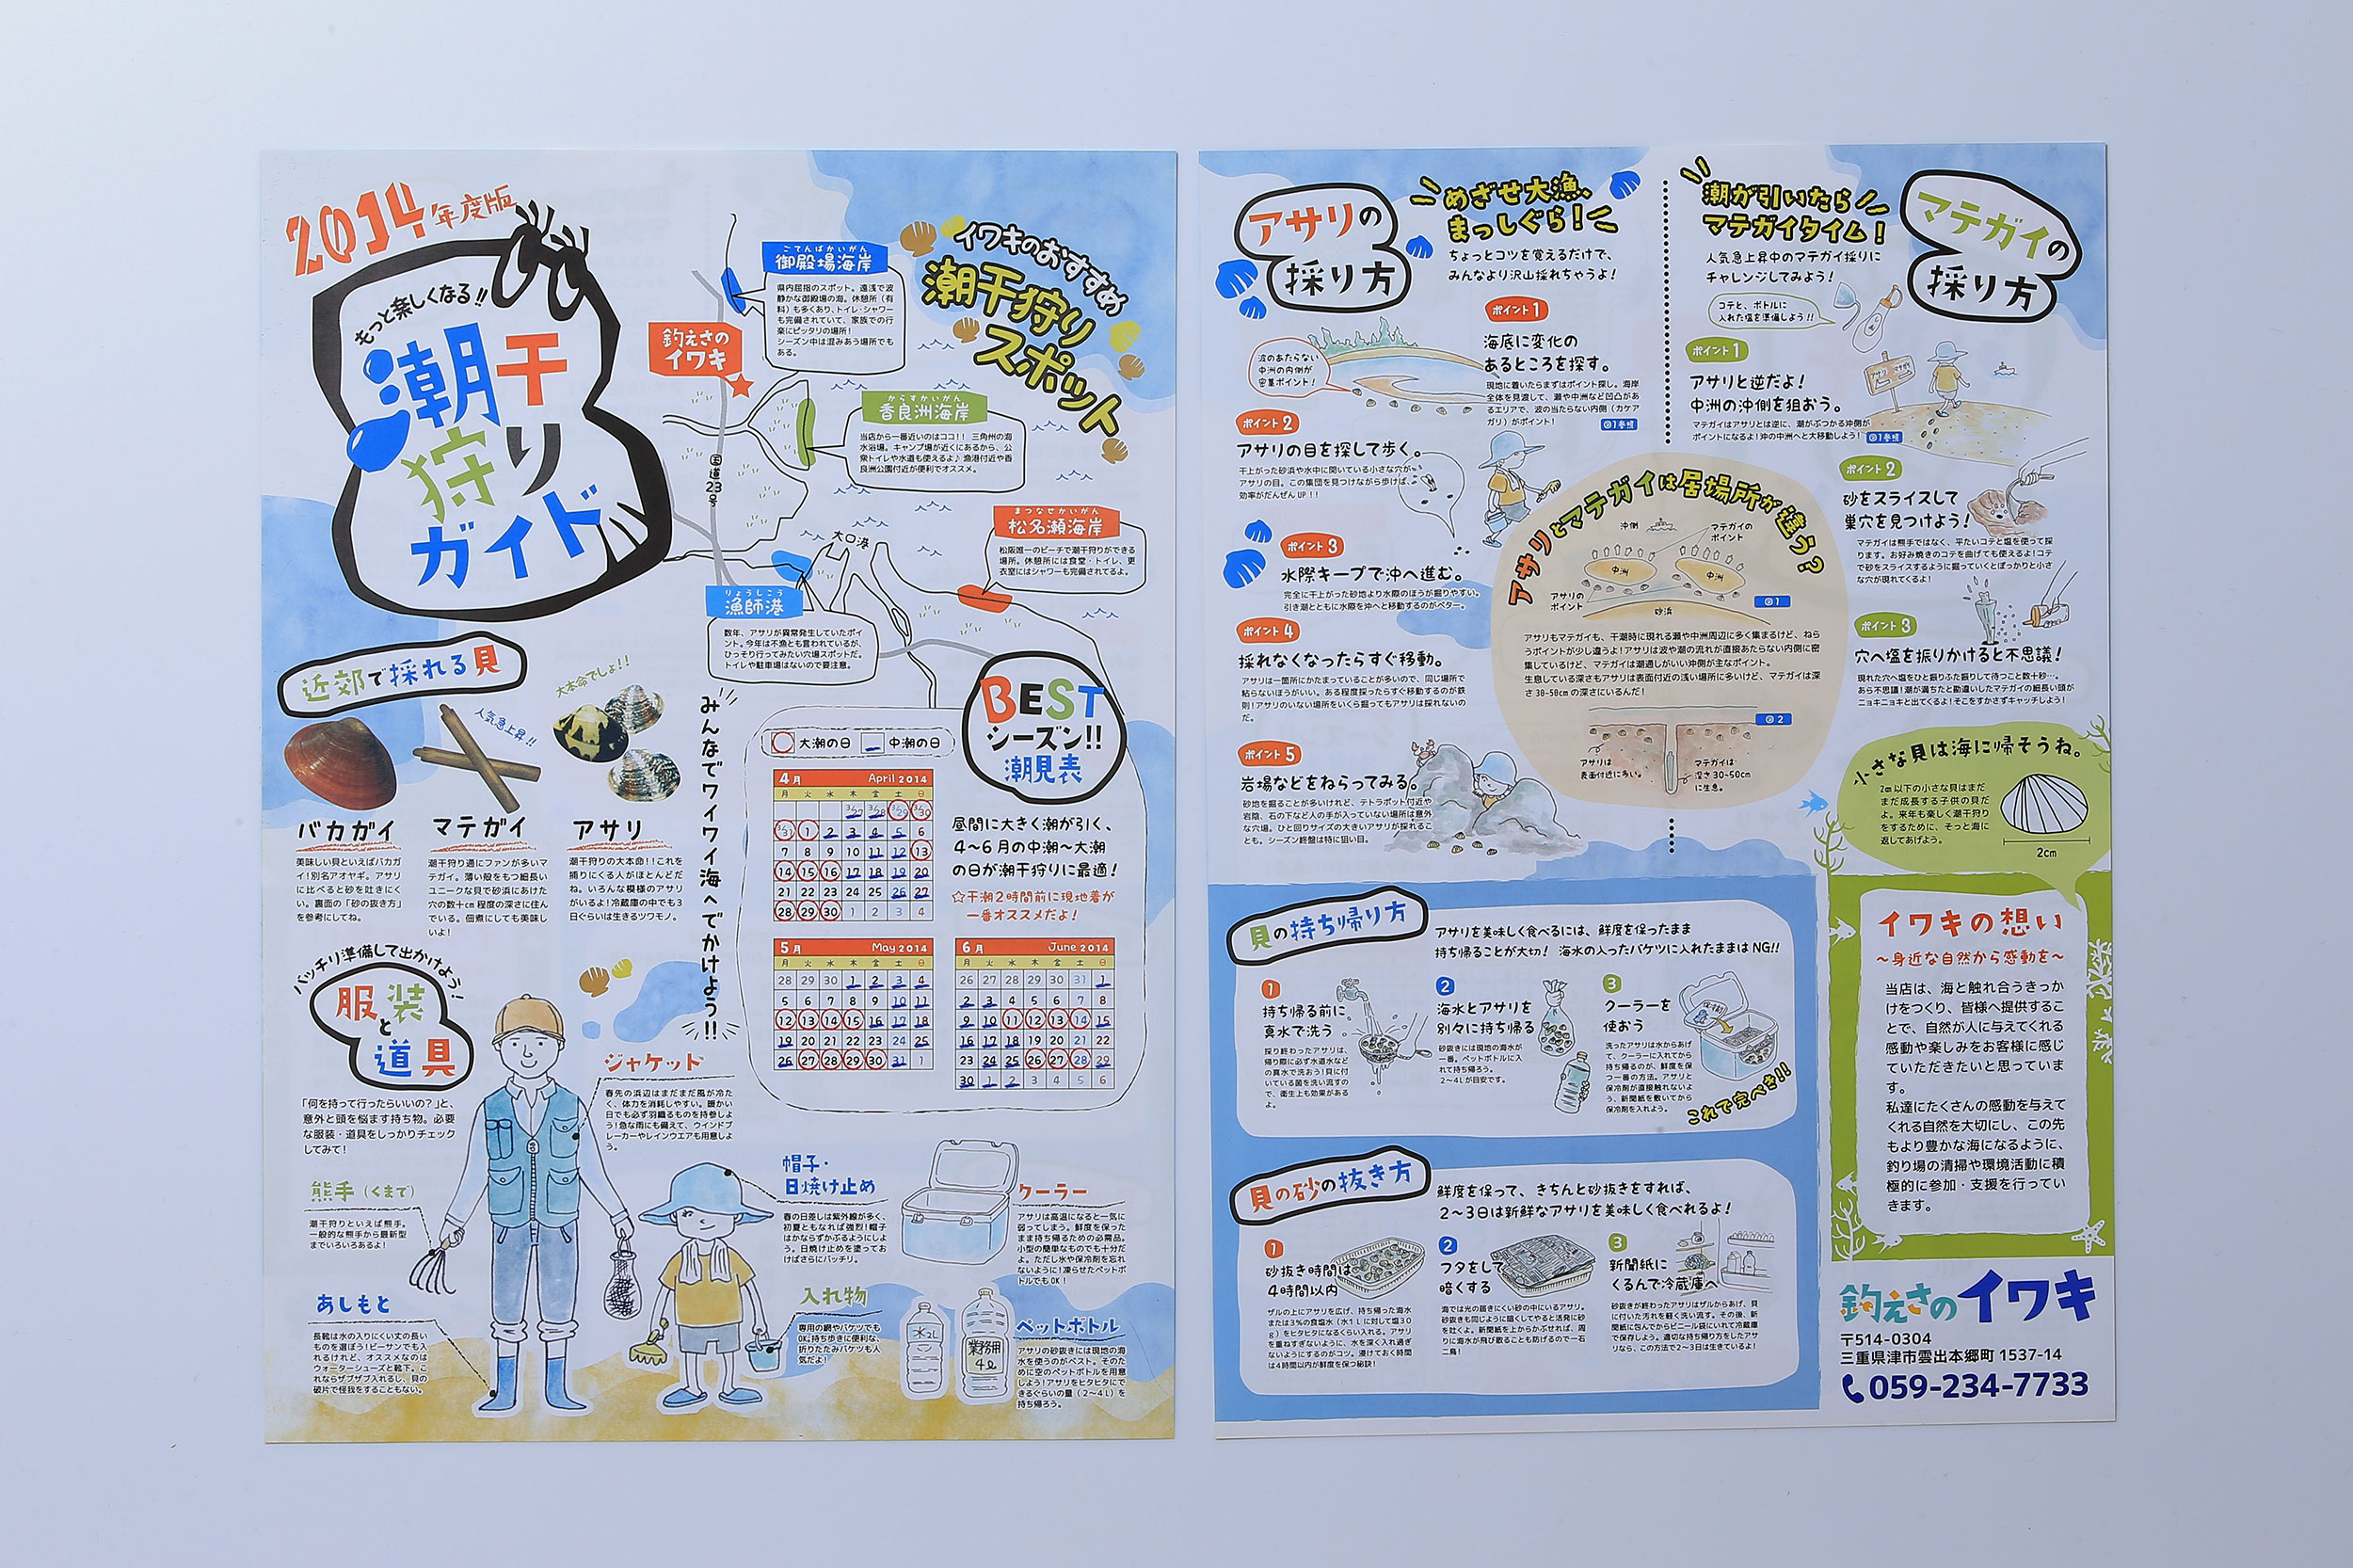 2014年度版
もっと楽しくなる!!
潮干
狩り
ガイド
イワキのおすすめ
潮干狩り
スポット
ごてんばかいがん
御殿場海岸
県内屈指のスポット。遠浅で波
静かな御殿場の海。休憩所（有
料）も多くあり、トイレ・シャワー
も完備されていて、家族での行
楽にピッタリの場所!
シーズン中は混みあう場所でも
ある。
釣えさの
イワキ
からすかいがん
香良洲海岸
当店から一番近いのはココ!! 三角州の海
水浴場。キャンプ場が近くにあるから、公
衆トイレや水道も使えるよ♪漁港付近や香
良洲公園付近が便利でオススメ。
国道23号
まつなせかいがん
松名瀬海岸
松阪唯一のビーチで潮干狩りができる
場所。休憩所には食堂・トイレ、更
衣室にはシャワーも完備されてるよ。
大口港
りょうしこう
漁師港
数年、アサリが異常発生していたポイ
ント。今年は不漁とも言われているが、
ひっそり行ってみたい穴場スポットだ。
トイレや駐車場はないので要注意。
近郊で採れる貝
大本命でしょ!!
人気急上昇!!
バカガイ
美味しい貝といえばバカガ
イ!別名アオヤギ。アサリ
に比べると砂を吐きにく
い。裏面の「砂の抜き方」
を参考にしてね。
マテガイ
潮干狩り通にファンが多いマ
テガイ。薄い殻をもつ細長い
ユニークな貝で砂浜にあけた
穴の数十cm程度の深さに住ん
でいる。佃煮にしても美味し
いよ!
アサリ
潮干狩りの大本命!!これを
捕りにくる人がほとんどだ
ね。いろんな模様のアサリ
がいるよ!冷蔵庫の中でも3
日ぐらいは生きるツワモノ。
みんなでワイワイ海へでかけよう!!
BEST
シーズン!!
潮見表
大潮の日 中潮の日
4月 April 2014
月 火 水 木 金 土 日
3/27 3/28 3/29 3/30
3/31 1 2 3 4 5 6
7 8 9 10 11 12 13
14 15 16 17 18 19 20
21 22 23 24 25 26 27
28 29 30 1 2 3 4
昼間に大きく潮が引く、
4〜6月の中潮〜大潮
の日が潮干狩りに最適!
☆干潮2時間前に現地着が
一番オススメだよ!
5月 May 2014
月 火 水 木 金 土 日
28 29 30 1 2 3 4
5 6 7 8 9 10 11
12 13 14 15 16 17 18
19 20 21 22 23 24 25
26 27 28 29 30 31 1
6月 June 2014
月 火 水 木 金 土 日
26 27 28 29 30 31 1
2 3 4 5 6 7 8
9 10 11 12 13 14 15
16 17 18 19 20 21 22
23 24 25 26 27 28 29
30 1 2 3 4 5 6
バッチリ準備して出かけよう!
服装
と
道具
「何を持って行ったらいいの?」と、
意外と頭を悩ます持ち物。必要
な服装・道具をしっかりチェック
してみて!
ジャケット
春先の浜辺はまだまだ風が冷た
く、体力を消耗しやすい。暖かい
日でも必ず羽織るものを持参しよ
う!急な雨にも備えて、ウインドブ
レーカーやレインウエアも用意しよ
う。
熊手（くまで）
潮干狩りといえば熊手。
一般的な熊手から最新型
までいろいろあるよ!
あしもと
長靴は水の入りにくい丈の長い
ものを選ぼう!ビーサンでも入
れるけれど、オススメなのは
ウォーターシューズと靴下。こ
れならザブザブ入れるし、貝の
破片で怪我をすることもない。
帽子・
日焼け止め
春の日差しは紫外線が多く、
初夏ともなれば強烈!帽子
はかならずかぶるようにしよ
う。日焼け止めを塗ってお
けばさらにバッチリ。
クーラー
アサリは高温になると一気に
弱ってしまう。鮮度を保った
まま持ち帰るための必需品。
小型の簡単なものでも十分だ
よ。ただし氷や保冷剤を忘れ
ないように!凍らせたペットボ
トルでもOK!
入れ物
専用の網やバケツでも
OK。持ち歩きに便利な、
折りたたみバケツも人
気だよ!
水2L
業務用
4ℓ
ペットボトル
アサリの砂抜きには現地の海
水を使うのがベスト。そのた
めに空のペットボトルを用意
しよう!アサリをヒタヒタにで
きるぐらいの量（2〜4L）を
持ち帰ろう。
アサリの
採り方
めざせ大漁、
まっしぐら!
ちょっとコツを覚えるだけで、
みんなより沢山採れちゃうよ!
波のあたらない
中洲の内側が
密集ポイント!
ポイント1
海底に変化の
あるところを探す。
現地に着いたらまずはポイント探し。海岸
全体を見渡して、瀬や中洲など凹凸があ
るエリアで、波の当たらない内側（カケア
ガリ）がポイント!
図1参照
ポイント2
アサリの目を探して歩く。
干上がった砂浜や水中に開いている小さな穴が
アサリの目。この集団を見つけながら歩けば、
効率がだんぜんUP!!
ポイント3
水際キープで沖へ進む。
完全に干上がった砂地より水際のほうが掘りやすい。
引き潮とともに水際を沖へと移動するのがベター。
ポイント4
採れなくなったらすぐ移動。
アサリは一箇所にかたまっていることが多いので、同じ場所で
粘らないほうがいい。ある程度採ったらすぐ移動するのが鉄
則!アサリのいない場所をいくら掘ってもアサリは採れないの
だ。
ポイント5
岩場などをねらってみる。
砂地を掘ることが多いけれど、テトラポット付近や
岩陰、石の下など人の手が入っていない場所は意外
な穴場。ひと回りサイズの大きいアサリが採れるこ
とも。シーズン終盤は特に狙い目。
潮が引いたら
マテガイタイム!
人気急上昇中のマテガイ採りに
チャレンジしてみよう!
マテガイの
採り方
コテと、ボトルに
入れた塩を準備しよう!!
ポイント1
アサリと逆だよ!
中洲の沖側を狙おう。
マテガイはアサリとは逆に、潮がぶつかる沖側が
ポイントになるよ!沖の中洲へと大移動しよう!
図1参照
アサリ マテガイ
ポイント2
砂をスライスして
巣穴を見つけよう!
マテガイは熊手ではなく、平たいコテと塩を使って採
ります。お好み焼きのコテを曲げても使えるよ!コテ
で砂をスライスするように掘っていくとぽっかりと小さ
な穴が現れてくるよ!
ポイント3
穴へ塩を振りかけると不思議!
現れた穴へ塩をひと振りふた振りして待つこと数十秒…。
あら不思議!潮が満ちたと勘違いしたマテガイの細長い頭が
ニョキニョキと出てくるよ!そこをすかさずキャッチしよう!
アサリとマテガイは居場所が違う?
沖側
マテガイの
ポイント
中洲 中洲
アサリの
ポイント
砂浜
図1
アサリもマテガイも、干潮時に現れる瀬や中洲周辺に多く集まるけど、ねら
うポイントが少し違うよ!アサリは波や潮の流れが直接あたらない内側に密
集しているけど、マテガイは潮通しがいい沖側が主なポイント。
生息している深さもアサリは表面付近の浅い場所に多いけど、マテガイは深
さ30-50cmの深さにいるんだ!
図2
アサリは
表面付近に多い。
マテガイは
深さ30-50cm
に生息。
小さな貝は海に帰そうね。
2cm以下の小さな貝はまだ
まだ成長する子供の貝だ
よ。来年も楽しく潮干狩り
をするために、そっと海に
返してあげよう。
2cm
貝の持ち帰り方
アサリを美味しく食べるには、鮮度を保ったまま
持ち帰ることが大切! 海水の入ったバケツに入れたままはNG!!
1
持ち帰る前に
真水で洗う
採り終わったアサリは、
帰り際に必ず水道水など
の真水で洗おう!貝に付
いている菌を洗い流すの
で、衛生上も効果がある
よ。
2
海水とアサリを
別々に持ち帰る
砂抜きには現地の海水が
一番。ペットボトルに入
れて持ち帰ろう。
2〜4Lが目安です。
3
クーラーを
使おう
洗ったアサリは水からあげ
て、クーラーに入れてから
持ち帰るのが、鮮度を保
つ一番の方法。アサリと
保冷剤が直接触れないよ
う、新聞紙を敷いてから
保冷剤を入れよう。
保冷剤
これで完ぺき!!
貝の砂の抜き方
鮮度を保って、きちんと砂抜きをすれば、
2〜3日は新鮮なアサリを美味しく食べれるよ!
1
砂抜き時間は
4時間以内
ザルの上にアサリを広げ、持ち帰った海水
または3%の食塩水（水1Lに対して塩30
g）をヒタヒタになるくらい入れる。アサリ
を重ねすぎないように、水を深く入れ過ぎ
ないようにするのがコツ。漬けておく時間
は4時間以内が鮮度を保つ秘訣!
2
フタをして
暗くする
海では光の届きにくい砂の中にいるアサリ。
砂抜きも同じように暗くしてやると活発に砂
を吐くよ。新聞紙を上からかぶせれば、周
りに海水が飛び散ることも防げるので一石
二鳥!
3
新聞紙に
くるんで冷蔵庫へ
砂抜きが終わったアサリはザルからあげ、貝
に付いた汚れを軽く洗い流す。その後、新
聞紙に包んでからビニール袋にいれて冷蔵庫
で保存しよう。適切な持ち帰り方をしたアサ
リなら、この方法で2〜3日は生きているよ!
イワキの想い
〜身近な自然から感動を〜
当店は、海と触れ合うきっか
けをつくり、皆様へ提供するこ
とで、自然が人に与えてくれる
感動や楽しみをお客様に感じ
ていただきたいと思っていま
す。
私達にたくさんの感動を与えて
くれる自然を大切にし、この先
もより豊かな海になるように、
釣り場の清掃や環境活動に積
極的に参加・支援を行ってい
きます。
釣えさのイワキ
〒514-0304
三重県津市雲出本郷町 1537-14
059-234-7733